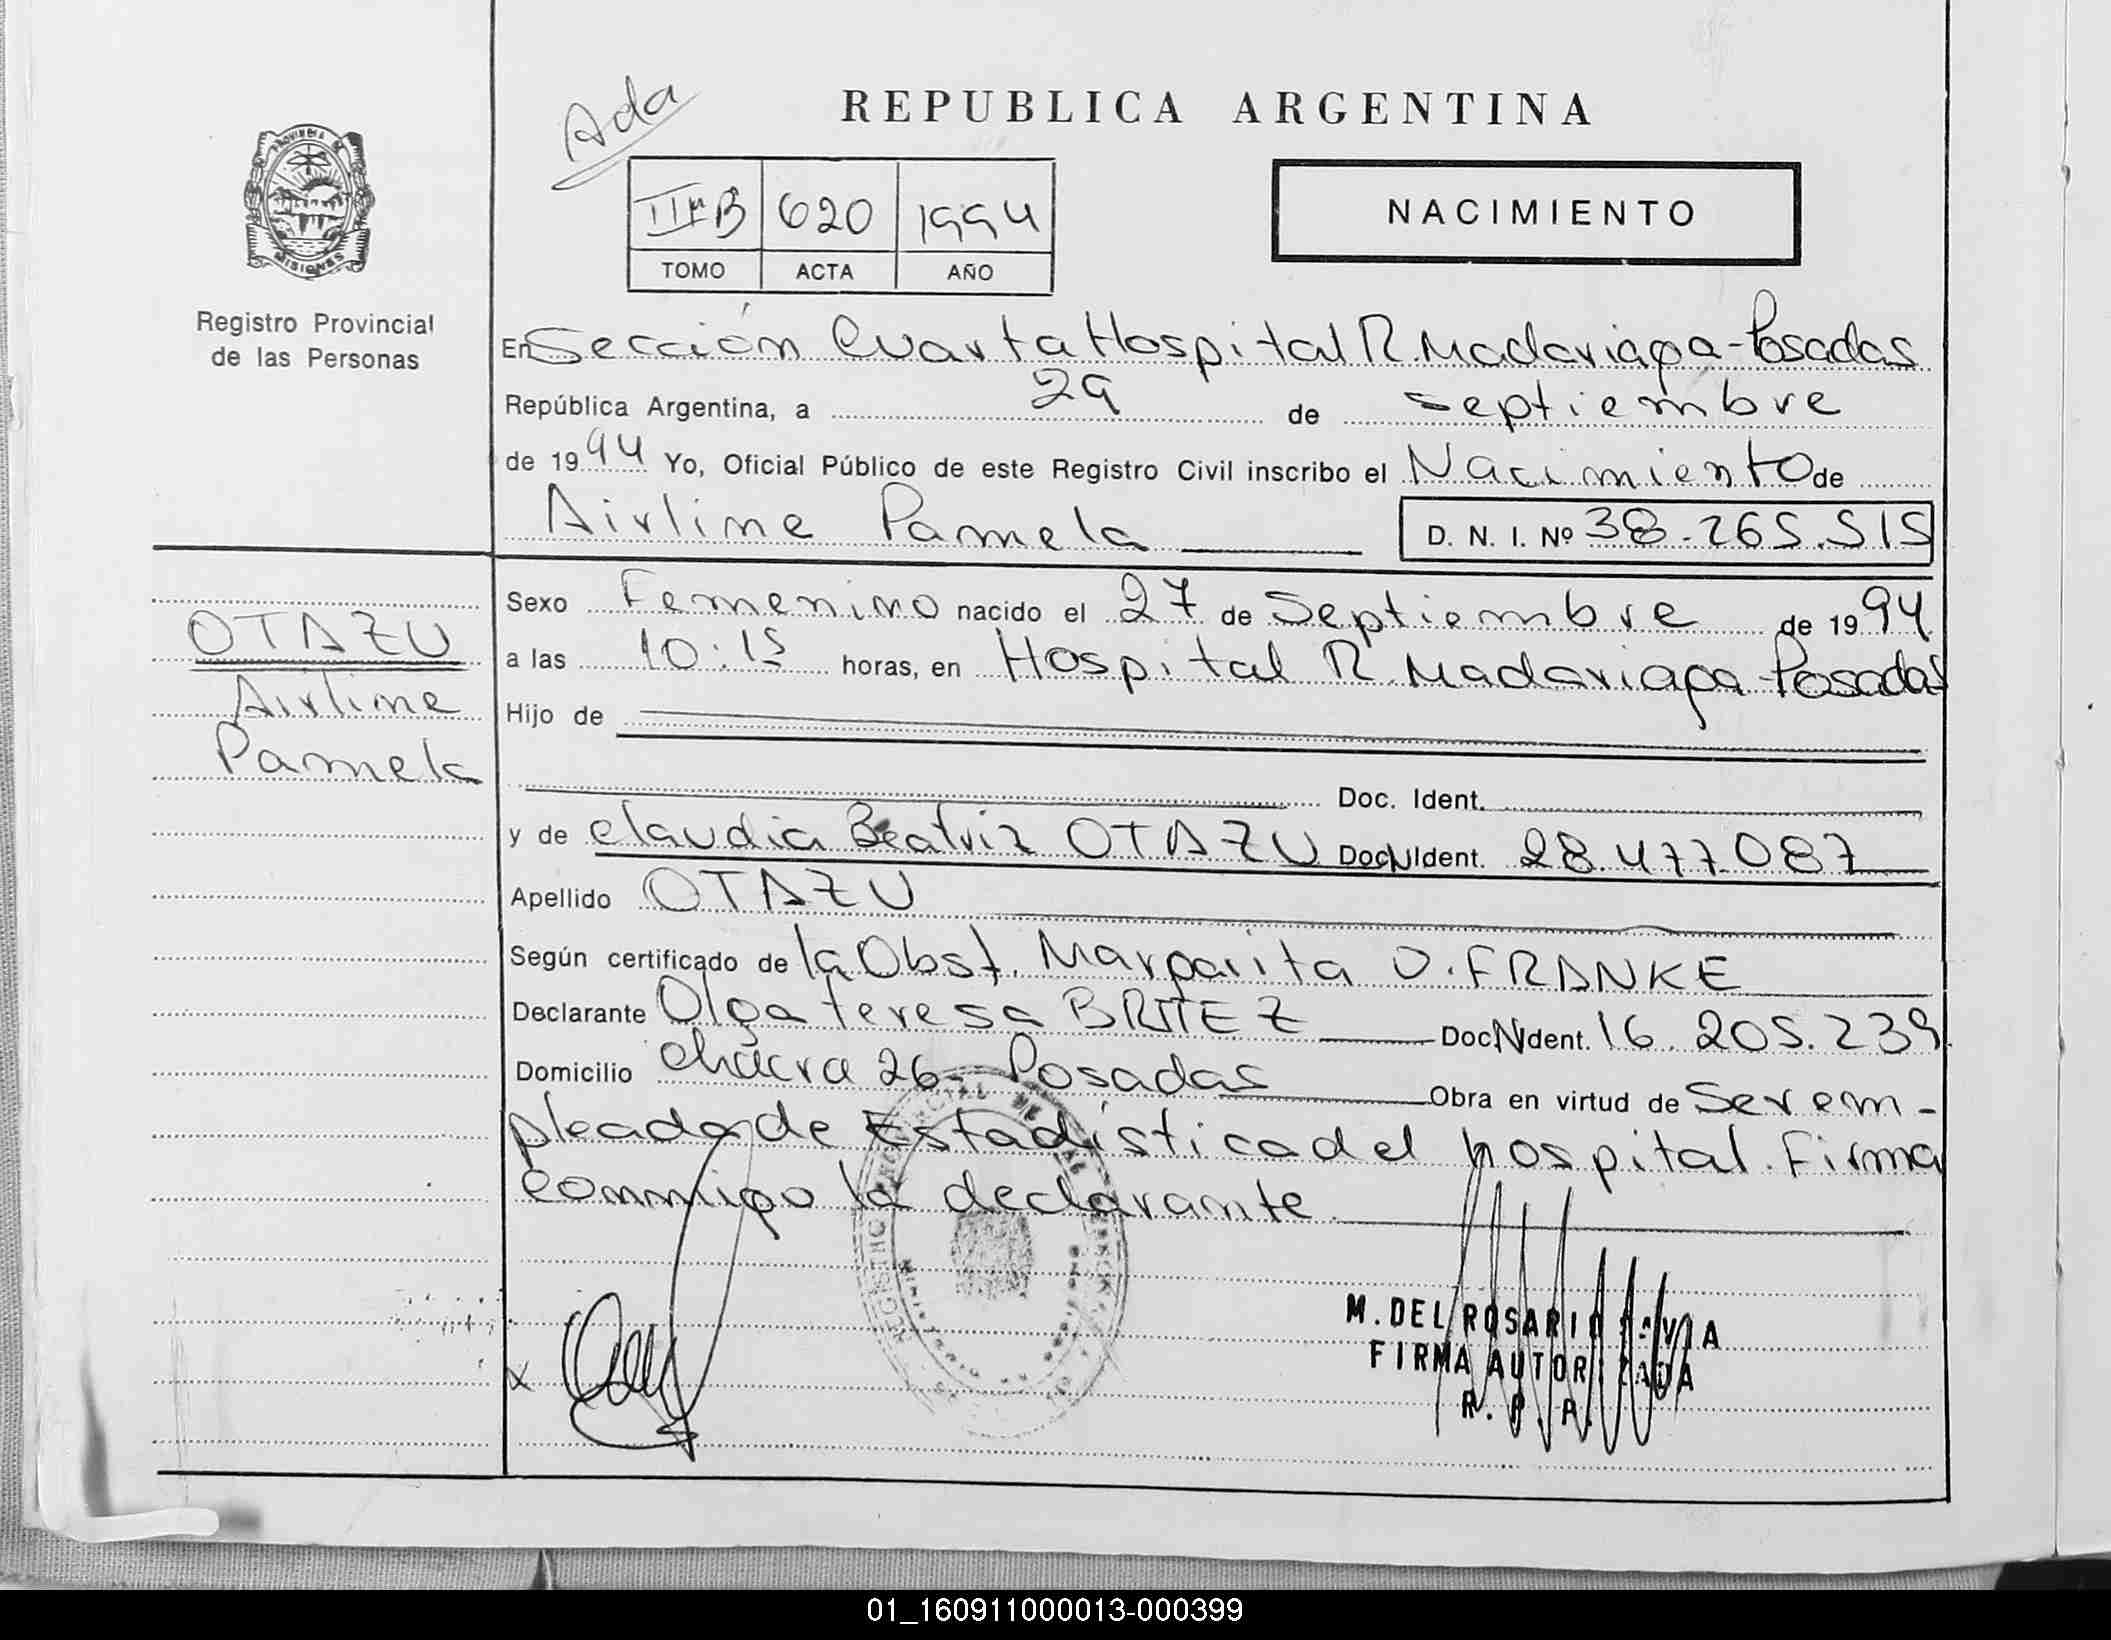 Ada
REPUBLICA ARGENTINA
PROVINCIA DE
MISIONES
IIIº B 620 1994
TOMO ACTA AÑO
NACIMIENTO
Registro Provincial
de las Personas
En Sección Cuarta Hospital R. Madariaga - Posadas
República Argentina, a 29 de septiembre
de 1994 Yo, Oficial Público de este Registro Civil inscribo el Nacimiento de
Airline Pamela D. N. I. Nº 38.265.515
OTAZU
Airline
Pamela
Sexo Femenino nacido el 27 de Septiembre de 1994
a las 10:15 horas, en Hospital R. Madariaga - Posadas
Hijo de
Doc. Ident.
y de Claudia Beatriz OTAZU Doc. Ident. 28.477.087
Apellido OTAZU
Según certificado de la Obst. Margarita O. FRANKE
Declarante Olga Teresa BRITEZ Doc. Ident. 16.205.239
Domicilio Chacra 26 - Posadas Obra en virtud de Ser em-
pleada de Estadística del hospital. Firma
conmigo la declarante
M. DEL ROSARIO
FIRMA AUTORIZADA
R. P. P.
01_160911000013-000399